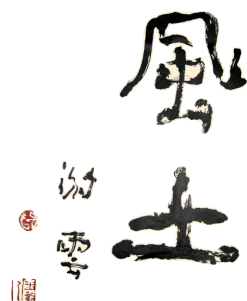 風土
谢雲